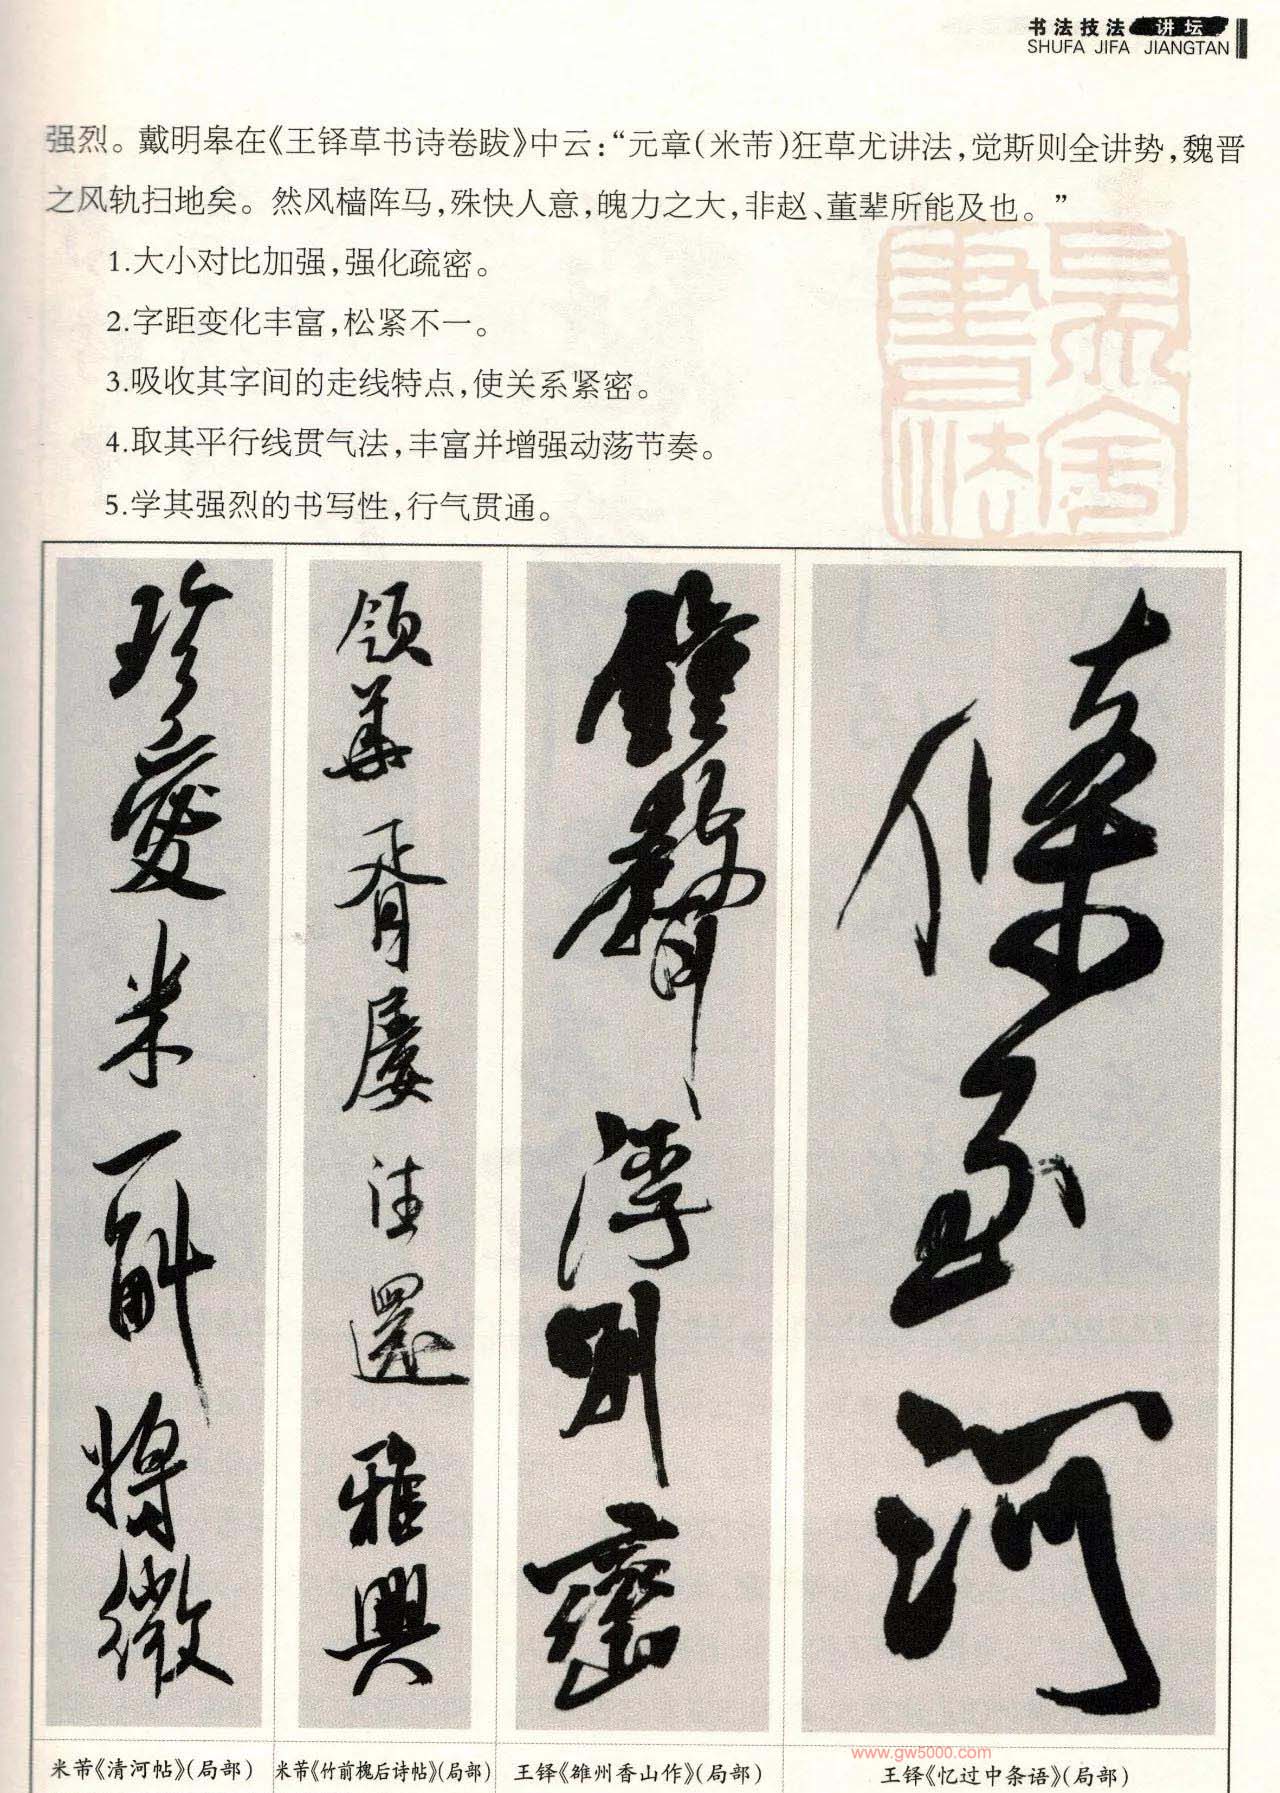 书法技法 讲坛
SHUFA JIFA JIANGTAN
强烈。戴明皋在《王铎草书诗卷跋》中云：“元章（米芾）狂草尤讲法，觉斯则全讲势，魏晋
之风轨扫地矣。然风樯阵马，殊快人意，魄力之大，非赵、董辈所能及也。”
1.大小对比加强，强化疏密。
2.字距变化丰富，松紧不一。
3.吸收其字间的走线特点，使关系紧密。
4.取其平行线贯气法，丰富并增强动荡节奏。
5.学其强烈的书写性，行气贯通。
珍愛米一斛將微
領華胥屢往還雅興
鐘聲浮別巒
條至河
www.gw5000.com
米芾《清河帖》（局部）
米芾《竹前槐后诗帖》（局部）
王铎《雒州香山作》（局部）
王铎《忆过中条语》（局部）